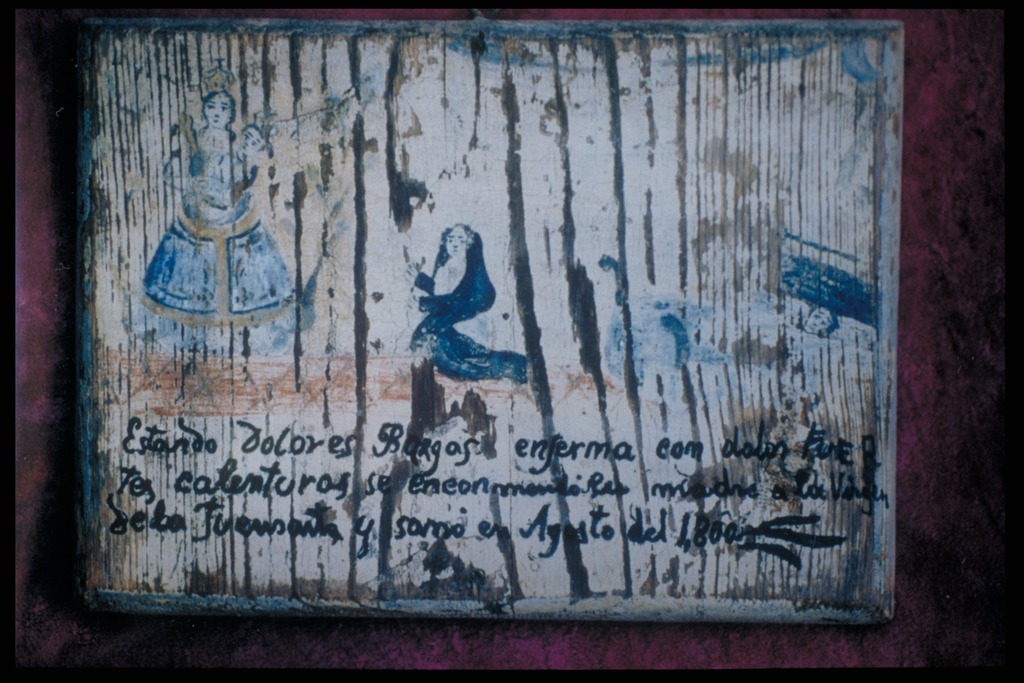 Estando Dolores Bargas enferma con dolor fuer
Tes calenturas se encommendó su madre a la Virgen
de la Fuensanta y sanó en Agosto del 1,800